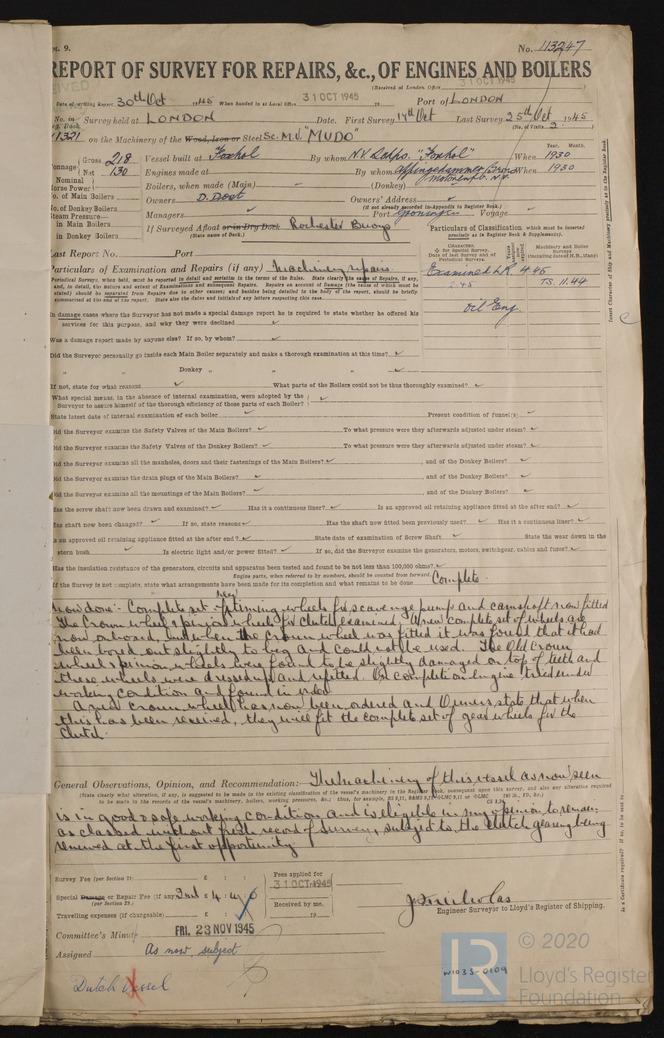 No. 113247
REPORT OF SURVEY FOR REPAIRS, &c., OF ENGINES AND BOILERS
(Received at London Office 31 OCT 1945
Date of writing Report 30th Oct 1945 When handed in at Local Office 31 OCT 1945 19 Port of LONDON
No. in Survey held at LONDON Date. First Survey 17th Oct Last Survey 25th Oct 1945
Reg. Book (No. of Visits 2.)
1321 on the Machinery of the Wood, Iron or Steel Sc. M.V. "MUDO"
Tonnage Gross 218 Vessel built at Foxhol By whom N.V. "Foxhol" When 1930
Net 130 Engines made at By whom When 1930
Nominal Horse Power Boilers, when made (Main) (Donkey)
No. of Main Boilers Owners D. Doot Owners' Address
No. of Donkey Boilers (if not already recorded in Appendix to Register Book.)
Steam Pressure— Managers Port Groningen Voyage
in Main Boilers If Surveyed Afloat or in Dry Dock Rochester Buoys
in Donkey Boilers (State name of Dock.)
Particulars of Classification which must be inserted precisely as in Register Book & Supplements.
Last Report No. Port
Examined LR 4.45
2.45 TS. 11.44
Oil Eng.
Particulars of Examination and Repairs (if any) Machinery repairs
In damage cases where the Surveyor has not made a special damage report he is required to state whether he offered his
services for this purpose, and why they were declined
Was a damage report made by anyone else? If so, by whom?
Did the Surveyor personally go inside each Main Boiler separately and make a thorough examination at this time?
" " Donkey " " "
If not, state for what reasons What parts of the Boilers could not be thus thoroughly examined?
What special means, in the absence of internal examination, were adopted by the
Surveyor to assure himself of the thorough efficiency of those parts of each Boiler?
State latest date of internal examination of each boiler Present condition of funnel(s)
Did the Surveyor examine the Safety Valves of the Main Boilers? To what pressure were they afterwards adjusted under steam?
Did the Surveyor examine the Safety Valves of the Donkey Boilers? To what pressure were they afterwards adjusted under steam?
Did the Surveyor examine all the manholes, doors and their fastenings of the Main Boilers? , and of the Donkey Boilers?
Did the Surveyor examine the drain plugs of the Main Boilers? , and of the Donkey Boilers?
Did the Surveyor examine all the mountings of the Main Boilers? , and of the Donkey Boilers?
Has the screw shaft now been drawn and examined? Has it a continuous liner? Is an approved oil retaining appliance fitted at the after end?
Has shaft now been changed? If so, state reasons Has the shaft now fitted been previously used? Has it a continuous liner?
Is an approved oil retaining appliance fitted at the after end? State date of examination of Screw Shaft State the wear down in the
stern bush Is electric light and/or power fitted? If so, did the Surveyor examine the generators, motors, switchgear, cables and fuses?
Has the insulation resistance of the generators, circuits and apparatus been tested and found to be not less than 100,000 ohms?
Engine parts, when referred to by numbers, should be counted from forward.
If the Survey is not complete, state what arrangements have been made for its completion and what remains to be done Complete.
Now done:- Complete set new timing wheels for scavenge pump and camshaft now fitted
The Crown wheel & pinion wheels for clutch examined. A new complete set of wheels are
now onboard, but when the crown wheel was fitted it was found that it had
been bored out slightly to big and could not be used. The old crown
wheel & pinion wheels were found to be slightly damaged on top of teeth and
these wheels were dressed up and refitted. On completion engine tried under
working condition and found in order.
A new crown wheel has now been ordered and Owners state that when
this has been received, they will fit the complete set of gear wheels for the
Clutch.
General Observations, Opinion, and Recommendation:— The machinery of this vessel as now seen
(State clearly what alteration, if any, is suggested to be made in the existing classification of the vessel's machinery in the Register Book, consequent upon this survey, and also any alteration required
to be made in the records of the vessel's machinery, boilers, working pressures, &c.;
is in good & safe working condition and is eligible in my opinion to remain
as classed without fresh record of survey, subject to the clutch gearing being
renewed at the first opportunity
Survey Fee (per Section 27) £ : : Fees applied for
31 OCT 1945
Special Damage or Repair Fee (if any) £ 4 : 4 : 0
(per Section 27.) Received by me,
Travelling expenses (if chargeable) £ : : 19
J. S. Nicholas
Engineer Surveyor to Lloyd's Register of Shipping.
Committee's Minute FRI. 23 NOV 1945
Assigned As now, subject
Dutch Vessel
W1035-0109
LR
© 2020
Lloyd's Register
Foundation